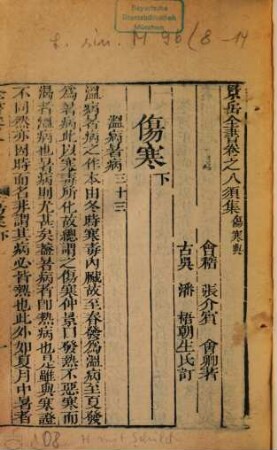 L. sin. M 96 (8-14
Bayerische
Staatsbibliothek
München
景岳全書卷之八須集 傷寒典
會稽 張介賓 會卿著
古吳 潘 梧朝生氏訂
傷寒下
溫病暑病 三十三
溫病暑病之作本由冬時寒毒內臟故至春發為溫病至夏發
為暑病此以寒毒所化故總謂之傷寒仲景曰發熱不惡寒而
渴者溫病也暑病則尤甚矣蓋暑病者即熱病也是雖與寒證
不同然亦因時而名非謂其病必皆熱也此外如夏月中暑者